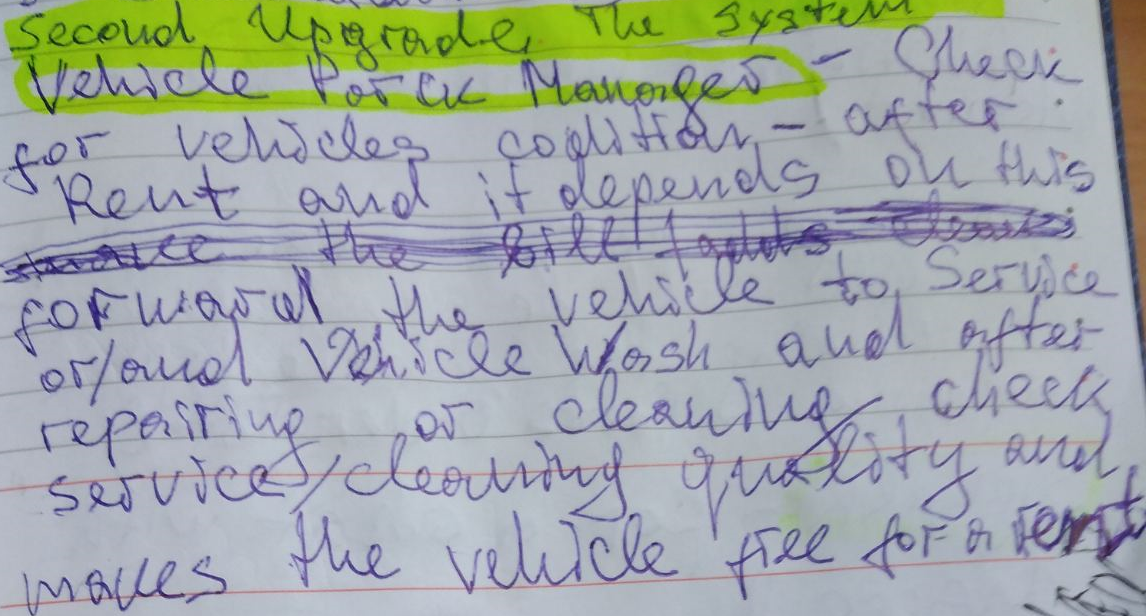 Second Upgrade, The system
Vehicle Porck Manager - Check
for vehicles codition - after
Rent and it depends on this
the bill
forward the vehicle to Service
or/and Vehicle Wash and after
repairing or cleaning, check
service/cleaning quality and
makes the vehicle free for a rent